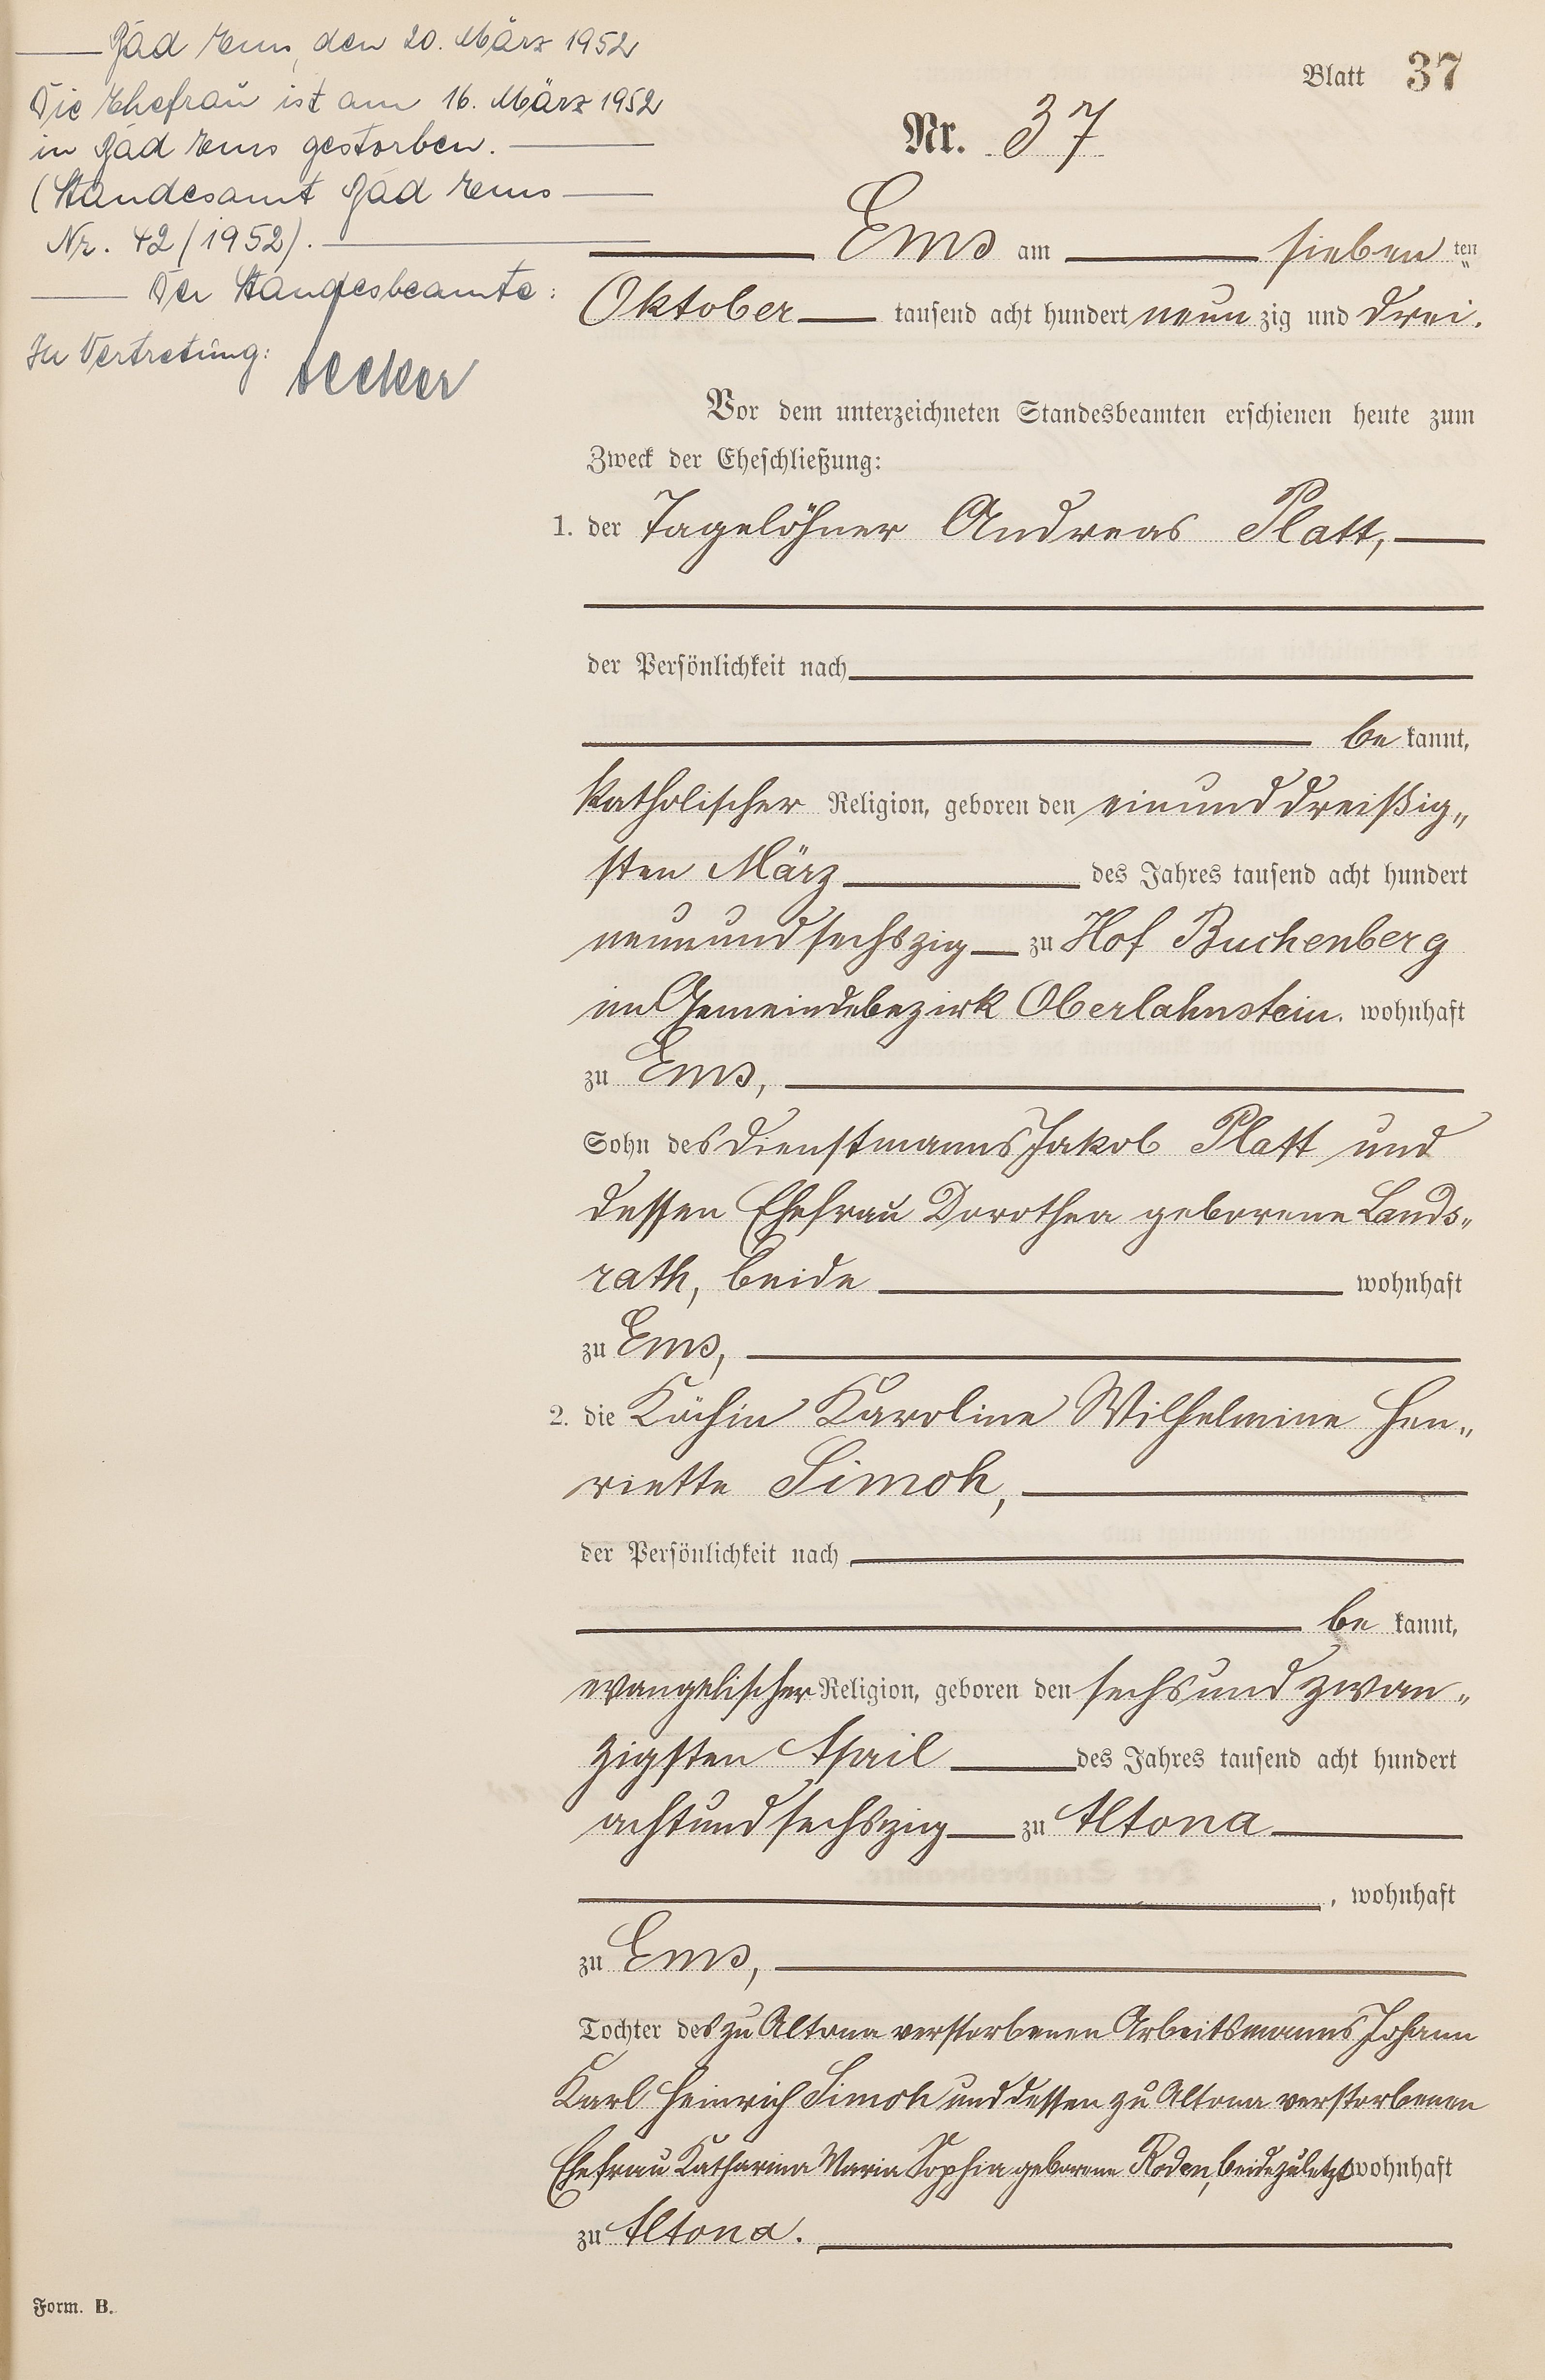 Bad Ems, den 20. März 1952
Die Ehefrau ist am 16. März 1952
in Bad Ems gestorben.
(Standesamt Bad Ems
Nr. 42/1952).
Der Standesbeamte:
In Vertretung:
Blatt 37
Nr. 37
Ems am sieben ten
Oktober tausend acht hundert neun zig und drei.
Vor dem unterzeichneten Standesbeamten erschienen heute zum
Zweck der Eheschließung:
1. der Tagelöhner Andreas Platt,
der Persönlichkeit nach
be kannt,
katholischer Religion, geboren den einunddreißig„
sten März des Jahres tausend acht hundert
neunundsechszig zu Hof Buchenberg
im Gemeindebezirk Oberlahnstein. wohnhaft
zu Ems,
Sohn des Dienstmanns Jakob Platt und
dessen Ehefrau Dorothea geborene Lands„
rath, beide wohnhaft
zu Ems,
2. die Köchin Karoline Wilhelmine Hen„
riette Simoh,
der Persönlichkeit nach
be kannt,
evangelischer Religion, geboren den sechsundzwan„
zigsten April des Jahres tausend acht hundert
achtundsechszig zu Altona
, wohnhaft
zu Ems,
Tochter des zu Altona verstorbenen Arbeitsmanns Johann
Karl Heinrich Simoh und dessen zu Altona verstorbenen
Ehefrau Katharina Maria Sophia geborene Roden, beide zuletzt wohnhaft
zu Altona.
Form. B.